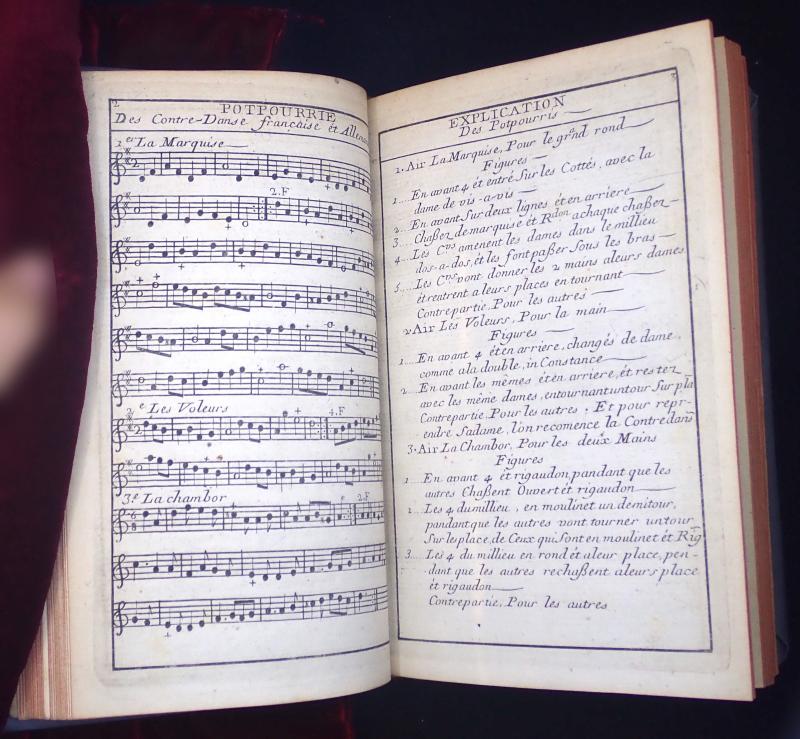 2
POTPOURRIE
Des Contre-Danse francaise et Allem
1.er La Marquise
2.F
2.e Les Voleurs
4.F
3.e La chambor
2.F
3
EXPLICATION
Des Potpourris
1.Air La Marquise, Pour le grand rond
Figures
1....En avant 4 ét entré Sur les Cottés, avec la
dame de vis-a-vis
2....En avant Sur deux lignes ét en arriere
3....Chaßez de marquise ét Rdon achaque chaßez
4....Les C.vrs amenent les dames dans le millieu
dos-a-dos, ét les font paßer Sous les bras
5....Les C.vrs vont donner les 2 mains aleurs dames
ét rentrent aleurs places en tournant
Contrepartie, Pour les autres
2 Air Les Voleurs, Pour la main
Figures
1....En avant 4 ét en arriere, changés de dame,
comme ala double, in Constance
2....En avant les mêmes ét en arriere, ét restez
avec les même dames, entournant untour Sur pla
Contrepartie, Pour les autres. Et pour repr-
endre Sadame, l'on recomence la Contredans
3.Air La Chambor, Pour les deux Mains
Figures
1....En avant 4 ét rigaudon, pandant que les
autres Chaßent Ouvert ét rigaudon
2....Les 4 du millieu, en moulinet un demitour,
pandant que les autres vont tourner untour
Sur les place, de Ceux qui Sont en moulinet ét Rig
3....Les 4 du millieu en rond ét aleur place, pen-
dant que les autres rechaßent aleurs place
ét rigaudon
Contrepartie, Pour les autres